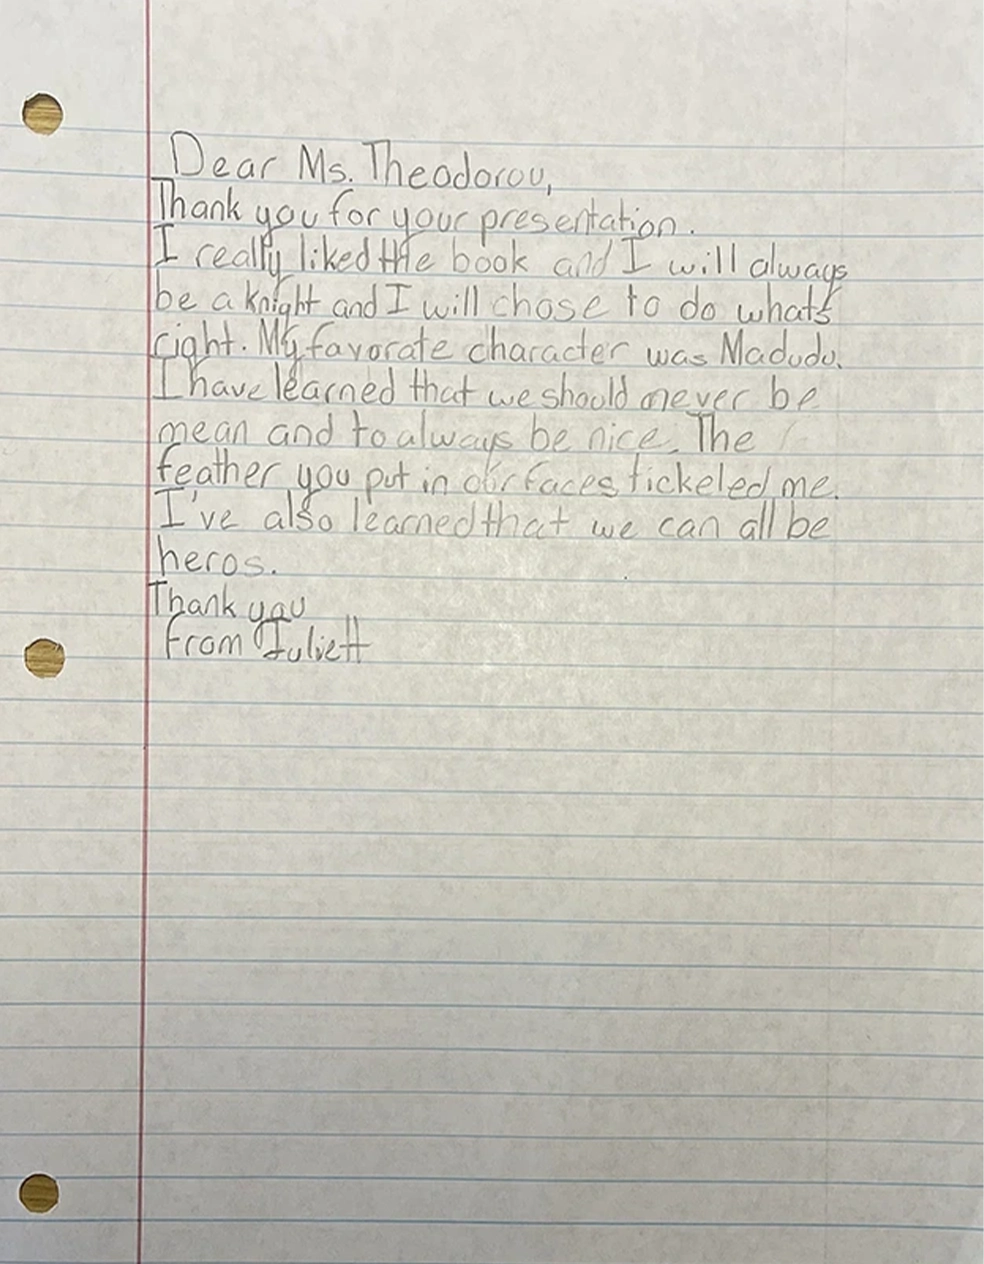 Dear Ms. Theodorou,
Thank you for your presentation.
I really liked the book and I will always
be a knight and I will chose to do what's
right. My favorate character was Madudu.
I have learned that we should never be
mean and to always be nice. The
feather you put in our faces tickeled me.
I've also learned that we can all be
heros.
Thank you
From Juliett